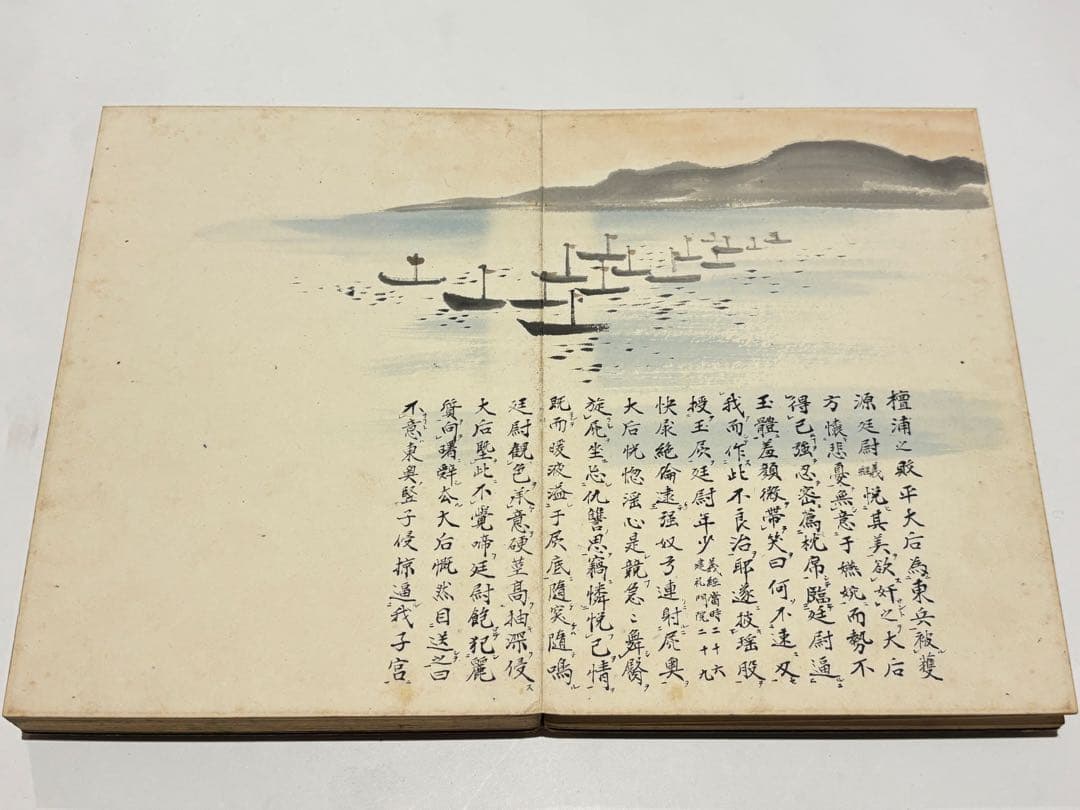 檀浦之敗平大后為東兵被獲
源廷尉義經悦其美欲奸之大后
方懐悲憂無意于嬿婉而勢不
得已強忍密薦枕席臨廷尉逼
玉體羞顔微帯笑曰何不速収
我而作此不良治耶遂披瑶股
授玉戻廷尉年少
義經當時二十六
建礼門院二十九
快尿絶倫逺強奴弓連射戻奥
大后恍惚滛心是競急〻舞臀
旋戻坐忘仇讐思竊憐悦已情
既而暖波溢于戻底隨突隨鳴
廷尉観色承意硬莖髙抽深侵
大后墾此不覺啼廷尉飽犯麗
質向曙辭去大后慨然目送之曰
不意東奥竪子侵掠逼我子宮